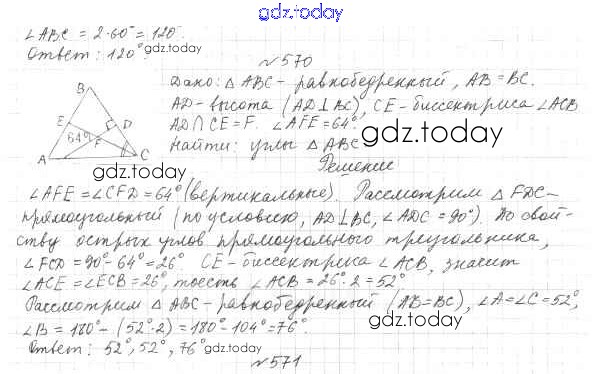 gdz.today
∠ABC = 2·60° = 120°.
Ответ: 120°. gdz.today
№570
Дано: △ ABC - равнобедренный, AB = BC.
AD - высота (AD⊥BC), CE - биссектриса ∠ACB
AD∩CE = F. ∠AFE = 64°. gdz.today
Найти: углы △ ABC
B
E
D
64°
F
A
C
gdz.today
Решение
∠AFE = ∠CFD = 64° (вертикальные). Рассмотрим △ FDC -
прямоугольный (по условию, AD⊥BC, ∠ADC = 90°). По свой-
ству острых углов прямоугольного треугольника,
∠FCD = 90° - 64° = 26°. CE - биссектриса ∠ACB, значит
∠ACE = ∠ECB = 26°, тоесть ∠ACB = 26°·2 = 52°
Рассмотрим △ ABC - равнобедренный (AB = BC), ∠A = ∠C = 52°,
∠B = 180° - (52°·2) = 180° - 104° = 76°. gdz.today
Ответ: 52°, 52°, 76° gdz.today
№571